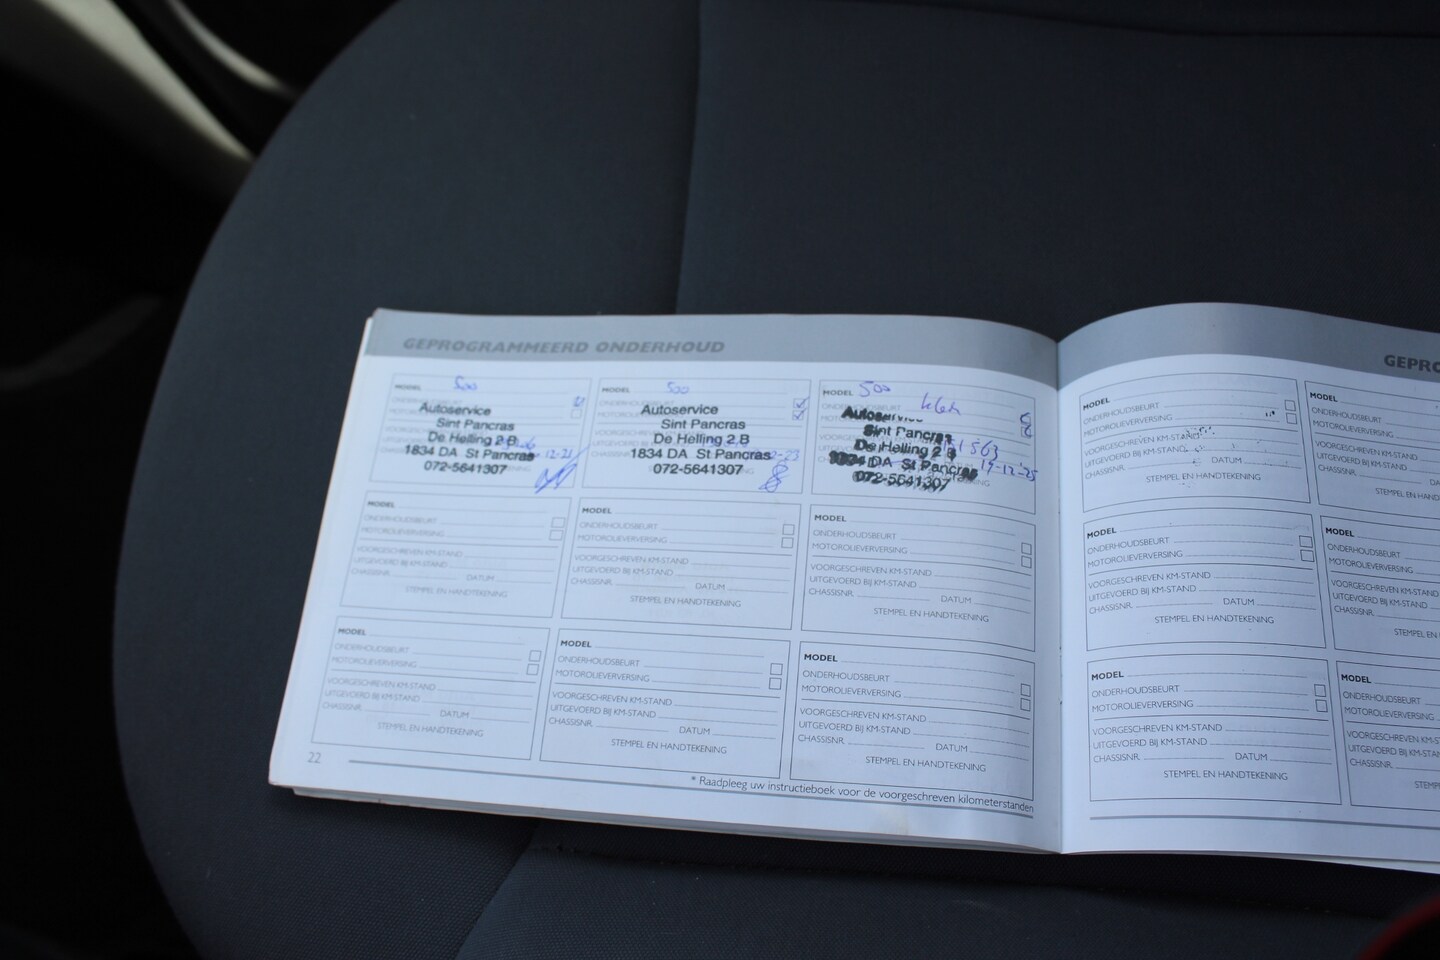 GEPROGRAMMEERD ONDERHOUD
MODEL 500
Autoservice
Sint Pancras
De Helling 2 B
1834 DA St Pancras
12-21
072-5641307
MODEL 500
Autoservice
Sint Pancras
De Helling 2 B
1834 DA St Pancras
-23
072-5641307
MODEL 500
Autoservice
Sint Pancras
De Helling 2 B
563
1834 DA St Pancras
072-5641307
MODEL
ONDERHOUDSBEURT
MOTOROLIEVERVERSING
VOORGESCHREVEN KM-STAND
UITGEVOERD BIJ KM-STAND
CHASSISNR. DATUM
STEMPEL EN HANDTEKENING
MODEL
ONDERHOUDSBEURT
MOTOROLIEVERVERSING
VOORGESCHREVEN KM-STAND
UITGEVOERD BIJ KM-STAND
CHASSISNR. DATUM
STEMPEL EN HANDTEKENING
MODEL
ONDERHOUDSBEURT
MOTOROLIEVERVERSING
VOORGESCHREVEN KM-STAND
UITGEVOERD BIJ KM-STAND
CHASSISNR. DATUM
STEMPEL EN HANDTEKENING
MODEL
ONDERHOUDSBEURT
MOTOROLIEVERVERSING
VOORGESCHREVEN KM-STAND
UITGEVOERD BIJ KM-STAND
CHASSISNR. DATUM
STEMPEL EN HANDTEKENING
MODEL
ONDERHOUDSBEURT
MOTOROLIEVERVERSING
VOORGESCHREVEN KM-STAND
UITGEVOERD BIJ KM-STAND
CHASSISNR. DATUM
STEMPEL EN HANDTEKENING
MODEL
ONDERHOUDSBEURT
MOTOROLIEVERVERSING
VOORGESCHREVEN KM-STAND
UITGEVOERD BIJ KM-STAND
CHASSISNR. DATUM
STEMPEL EN HANDTEKENING
22
* Raadpleeg uw instructieboek voor de voorgeschreven kilometerstanden
GEPRO
MODEL
ONDERHOUDSBEURT
MOTOROLIEVERVERSING
VOORGESCHREVEN KM-STAND
UITGEVOERD BIJ KM-STAND
CHASSISNR. DATUM
STEMPEL EN HANDTEKENING
MODEL
ONDERHOUDSBEURT
MOTOROLIEVERVERSING
VOORGESCHREVEN KM-S
UITGEVOERD BIJ KM-STAND
CHASSISNR. DA
STEMPEL EN HAND
MODEL
ONDERHOUDSBEURT
MOTOROLIEVERVERSING
VOORGESCHREVEN KM-STAND
UITGEVOERD BIJ KM-STAND
CHASSISNR. DATUM
STEMPEL EN HANDTEKENING
MODEL
ONDERHOUDSBEURT
MOTOROLIEVERVERSING
VOORGESCHREVEN KM-S
UITGEVOERD BIJ KM-STAN
CHASSISNR.
STEMPEL EN
MODEL
ONDERHOUDSBEURT
MOTOROLIEVERVERSING
VOORGESCHREVEN KM-STAND
UITGEVOERD BIJ KM-STAND
CHASSISNR. DATUM
STEMPEL EN HANDTEKENING
MODEL
ONDERHOUDSBEURT
MOTOROLIEVERVERSING
VOORGESCHREVEN KM-
UITGEVOERD BIJ KM-STA
CHASSISNR.
STEMP